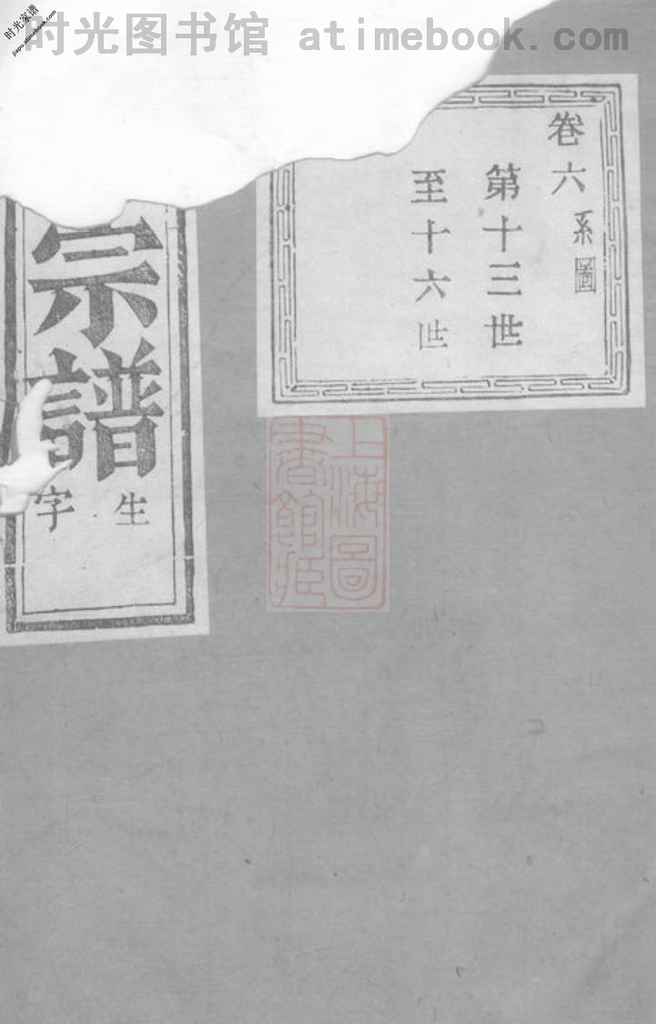 时光图书馆 atimebook.com
时光家谱
jiapu.atimebook.com
卷六 系圖
第十三世
至十六世
宗譜
生字
上海圖書館藏